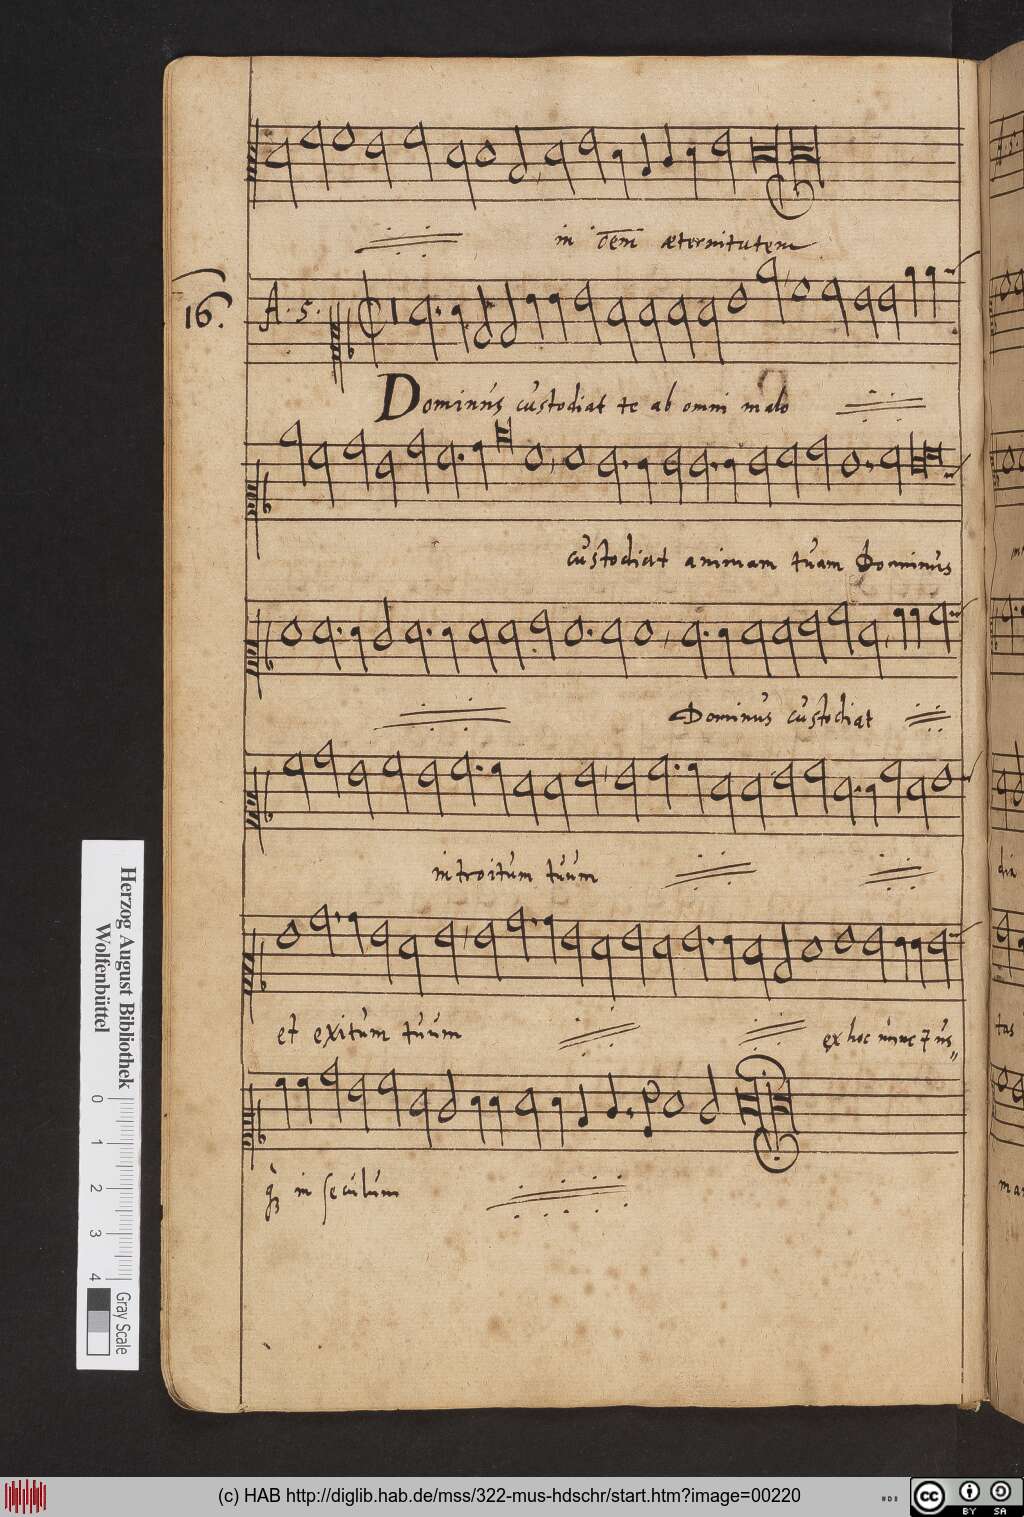 in oem æternitatem
16.
A. 5.
Dominus custodiat te ab omni malo
custodiat animam tuam Dominus
Dominus custodiat
introitum tuum
et exitum tuum ex hoc nunc & us„
q3 in seculum
Herzog August Bibliothek
Wolfenbüttel
0 1 2 3 4
Gray Scale
(c) HAB http://diglib.hab.de/mss/322-mus-hdschr/start.htm?image=00220
cc BY SA